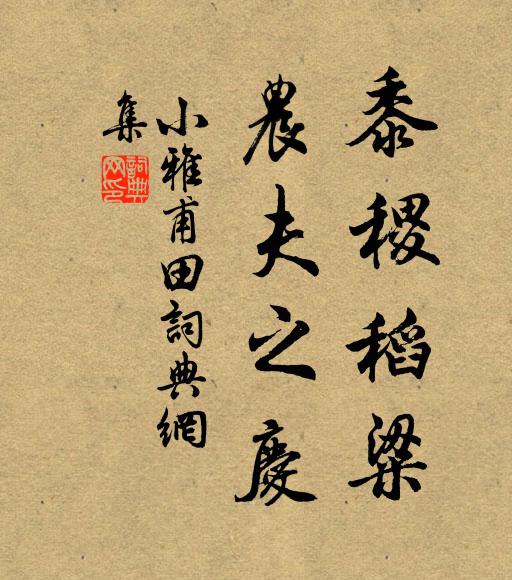 黍稷稻粱
農夫之慶
小雅甫田詞典網
集
詞典
网印